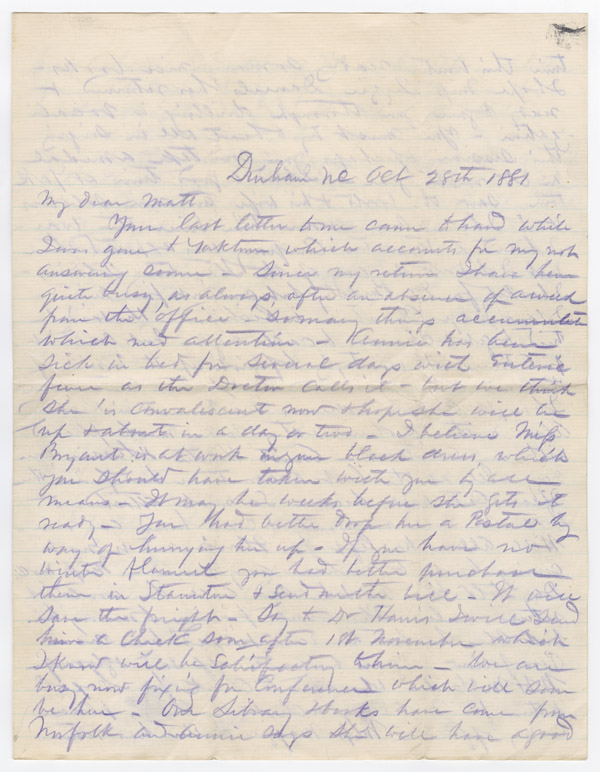 Durham NC Oct 28th, 1881.
My dear Matt
Your last letter to me came to hand while
I was gone to Yorktown which accounts for my not
answering sooner - Since my return I have been
quite busy, as always, after an absence of a week
from the office - so many things accumulate
which need attention - Kinnie has been
sick in bed for several days with Enteric
fever as the Doctor calls it - but we think
she is convalescent now & hope she will be
up & about in a day or two - I believe Miss
Bryant is at work on your black dress, which
you should have taken with you by all
means - It may be weeks before she gets it
ready - You had better drop her a Postal by
way of hurrying her up - If you have no
winter flannel you had better purchase
them in Staunton & send me the bill - It will
save the freight - Say to Dr Harris I will send
him a check soon after 1st November which
I know will be satisfactory to him - We are
busy now fixing for Conference which will soon
be here - Our Library & books have come from
Norfolk and Annie says she will have a good